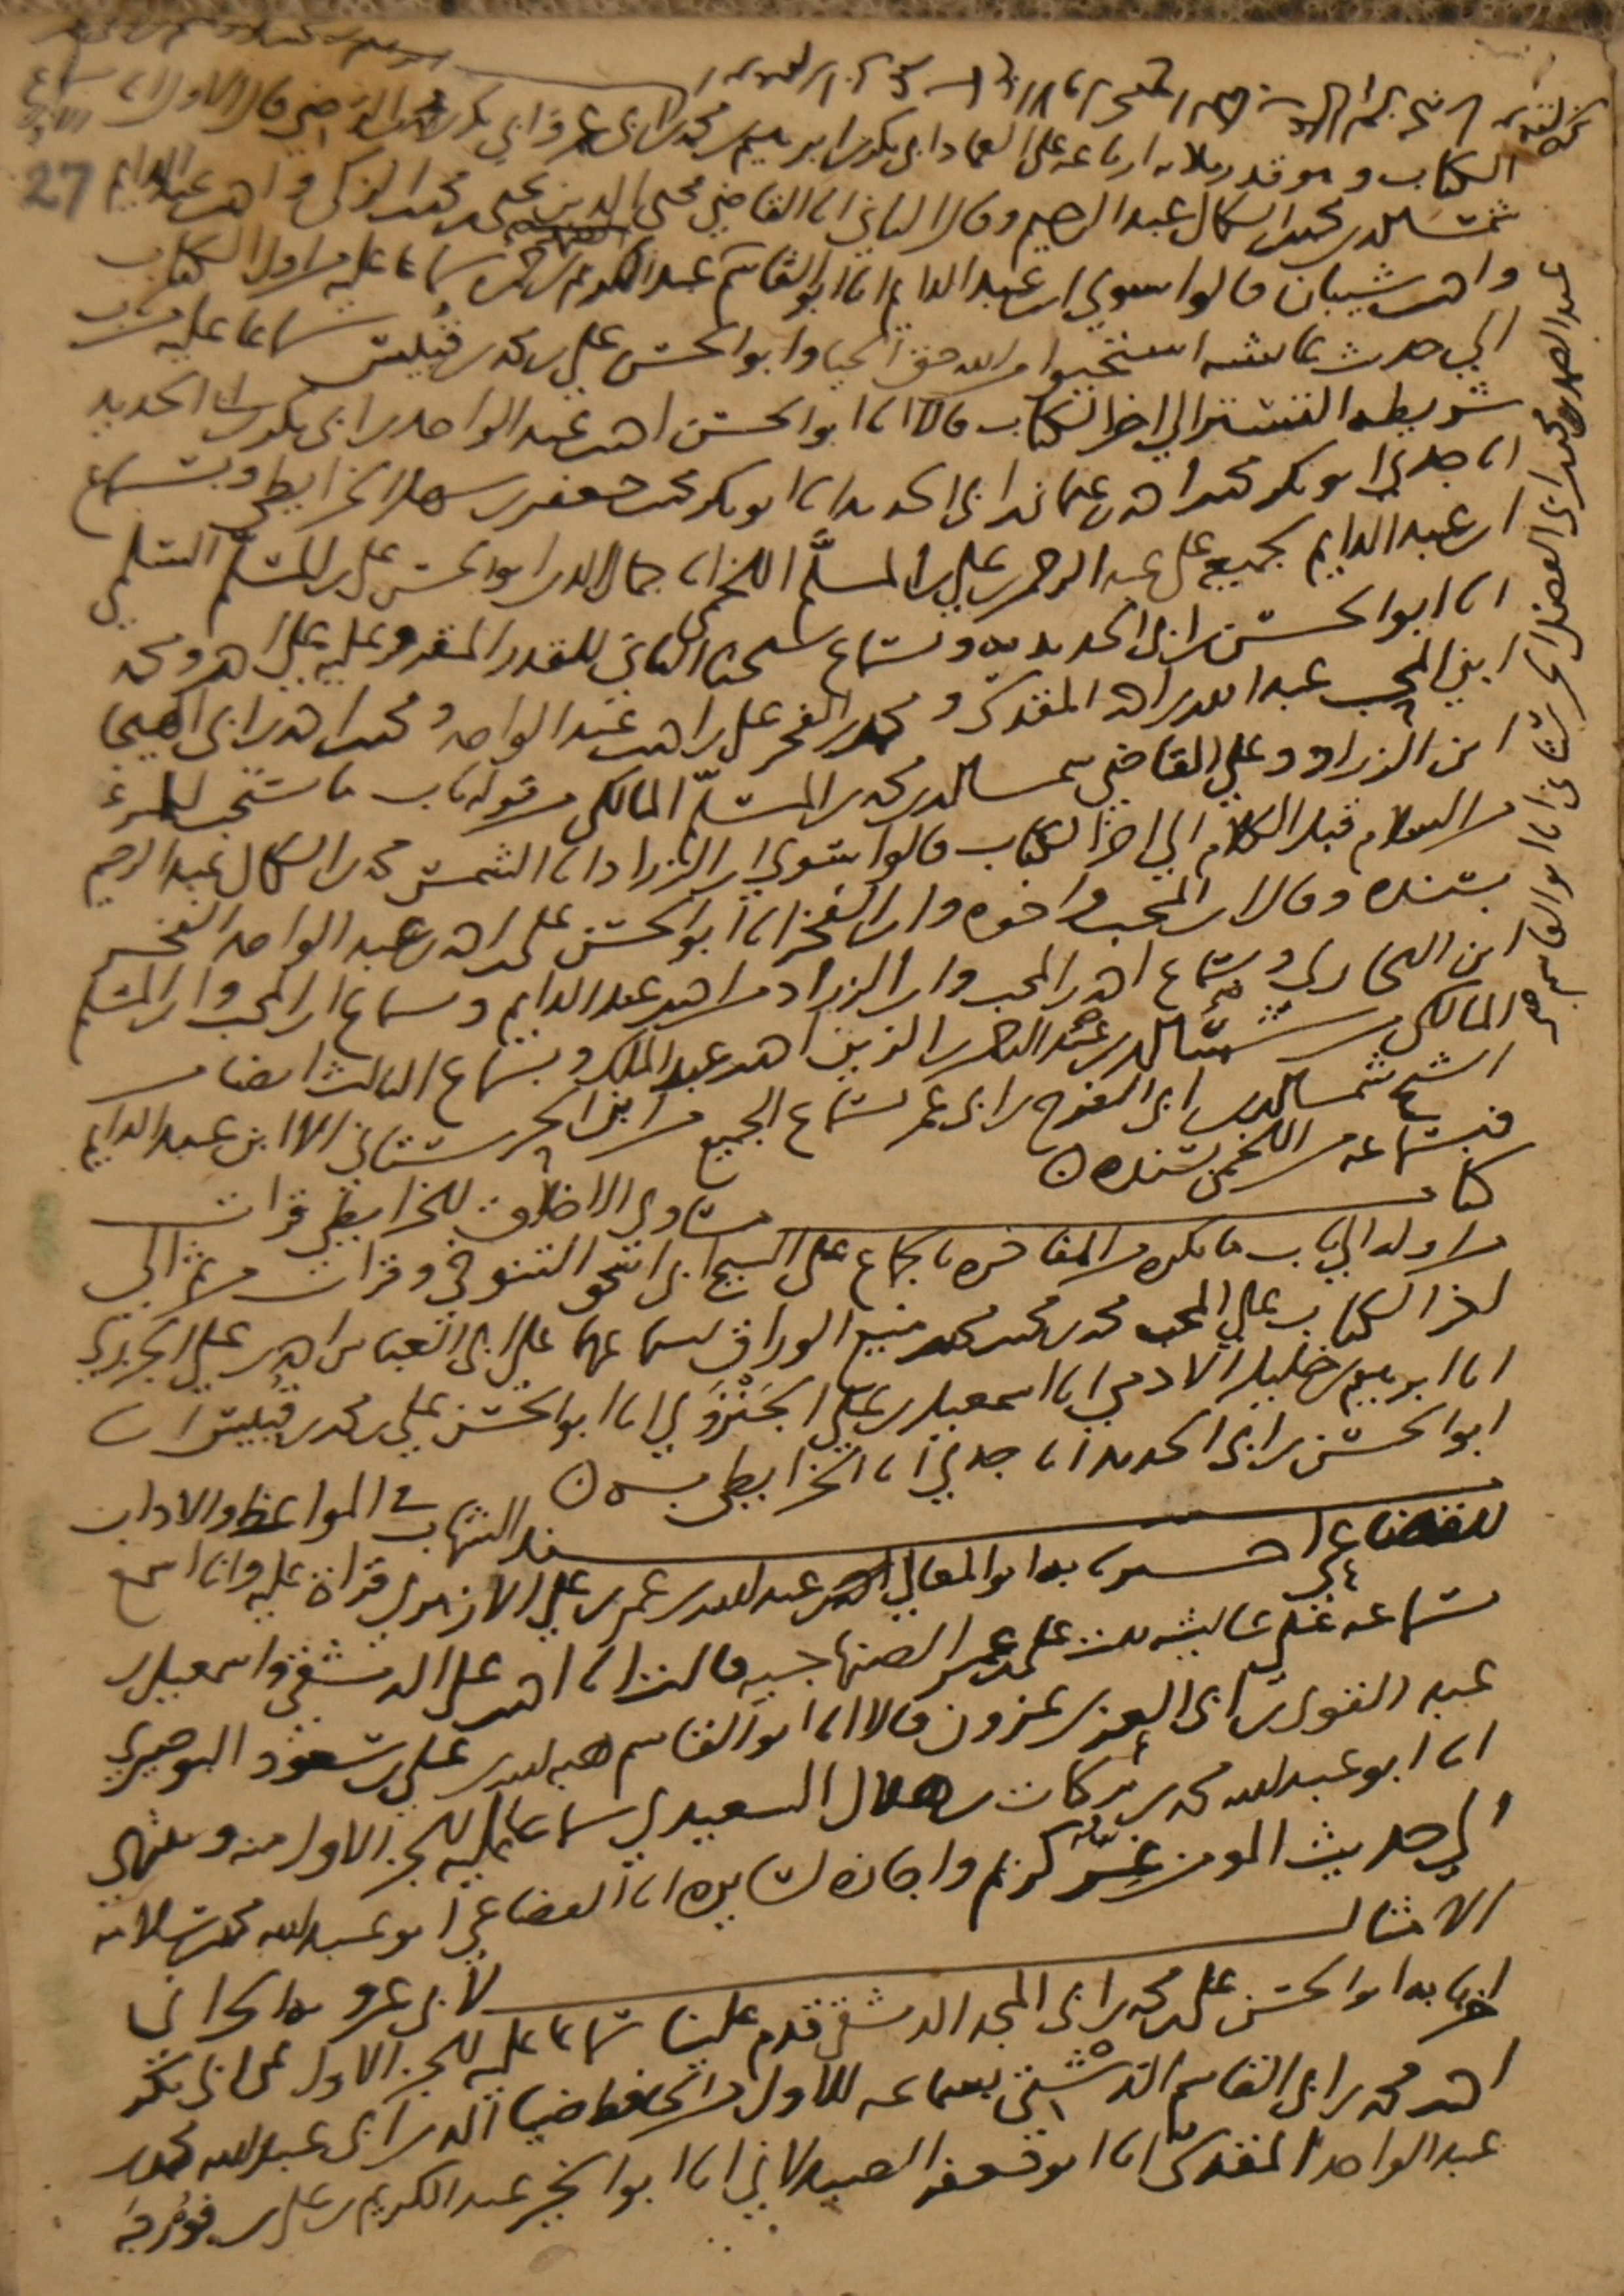 27
الكتاب وهو قدر ثلاثة ارباعه على العماد ابى بكر بن ابرهيم بن محمد بن ابى عمر وابى بكر بن
شمس الدين محمد بن الكمال عبد الرحيم وقال الثاني انا القاضي محيى الدين يحيى بن محمد بن الزكى واحمد بن عبد الدايم
واحمد بن شيبان قالوا سوى ابن عبد الدايم انا ابو القاسم عبد الصمد سماعا عليه من اول الكتاب
الي حديث عائشه استحيوا من الله حق الحيا وابو الحسن على بن محمد بن قبليس سماعا عليه من باب
شريطه التستر الي اخر الكتاب قالا انا ابو الحسن احمد بن عبد الواحد بن ابى بكر بن ابى الحديد
انا جدي ابو بكر محمد بن احمد بن عثمان بن ابى الحديد انا ابو بكر محمد بن جعفر بن سهل الخرايطي وبسماع
ابن عبد الدايم لجميعه على عبد الرحمن بن علي بن المسلّم اللخمى انا جمال الدين ابو الحسن على بن المسلّم السلمي
انا ابو الحسن بن ابى الحديد به وبسماع شيخنا الثاني للقدر المقروء عليه على احمد ومحمد
ابني المحب عبد الله بن احمد المقدسى ومحمد بن الفخر على بن احمد بن عبد الواحد ومحمد بن احمد بن ابى الهيجا
ابن الزراد وعلي القاضي شمس الدين محمد بن المسلّم المالكى من قوله باب ما يستحب للمرء
من السلام قبل الكلام الي اخر الكتاب قالوا سوي ابن الزراد انا الشمس محمد بن الكمال عبد الرحيم
بسنده وقال ابن المحب واخوه وابن الفخر انا ابو الحسن على بن احمد بن عبد الواحد الفخر
ابن البخاري وبسماع احمد بن المحب وابن الزراد من احمد بن عبد الدايم وسماع ابن المحب وابن المسلم
المالكى من شمس الدين عبد الرحمن بن الزين احمد بن عبد الملك وبسماع الثالث ايضا من
الشيخ شمس الدين ابى الفرج بن ابى عمر بسماع الجميع من ابن الحرستاني الا ابن عبد الدايم
فبسماعه من اللخمى بسنده
كتاب مساوى الاخلاق للخرايطي قرات
من اوله الي باب ما يكره من المفاخره بالجماع على الشيخ ابى اسحق التنوخى وقرات من ثم الى
اخر الكتاب على المحب محمد بن محمد بن محمد بن منيع الوراق بسماعهما على ابى العباس احمد بن على الجزرى
انا ابرهيم بن خليل الادمي انا اسمعيل بن على الجَنْزَوي انا ابو الحسن علي بن محمد بن قبيس انا
ابو الحسن بن ابى الحديد انا جدي انا الخرايطى به
مسند الشهاب في المواعظ والاداب
للقضاعى اخبرنا به ابو المعالي عبد الله بن عمر بن علي الازهري قراة عليه وانا اسمع
بسماعه على عائشه بنت على بن عمر الصنهاجيه قالت انا احمد بن على الدمشقي واسمعيل بن
عبد القوى بن ابى العز بن عزون قالا انا ابو القاسم هبة الله بن على بن مسعود البوصيرى
انا ابو عبد الله محمد بن بركات بن هلال السعيدي سماعا عليه للجزء الاول منه ومنتهاه
الي حديث المومن غر كريم واجازه لسايره انا القضاعى ابو عبد الله محمد بن سلامه
الامثال لابى عروبه الحرانى
اخبرنا به ابو الحسن على بن محمد بن ابى المجد الدمشقي قدم علينا سماعا عليه للجزء الاول عن ابى بكر
احمد بن محمد بن ابى القاسم الدشتى بسماعه للاول من الحافظ ضيا الدين ابى عبد الله محمد بن
عبد الواحد المقدسى انا ابو جعفر الصيدلاني انا ابو الخير عبد الكريم بن على بن فورجه
عبد الصمد بن محمد بن ابى الفضل الحرستاني انا ابو القاسم